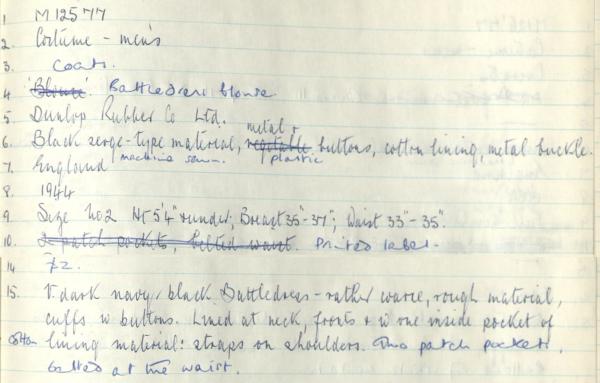 1 M 125 77
2. Costume - mens
3. Coats.
4 'Blouse'. Battledress blouse.
5 Dunlop Rubber Co Ltd.
metal +
6. Black serge-type material, vegetable buttons, cotton lining, metal buckle.
7. England machine sewn. plastic
8. 1944
9 Size no2 Ht 5'4" + under; Breast 35"-37"; Waist 33"-35".
10. 2 patch pockets, belted waist. Printed label.
14 F2.
15. V. dark navy/black Battledress - rather coarse, rough material,
cuffs w buttons. Lined at neck, fronts + w one inside pocket of
cotton lining material: straps on shoulders. Two patch pockets,
belted at the waist.